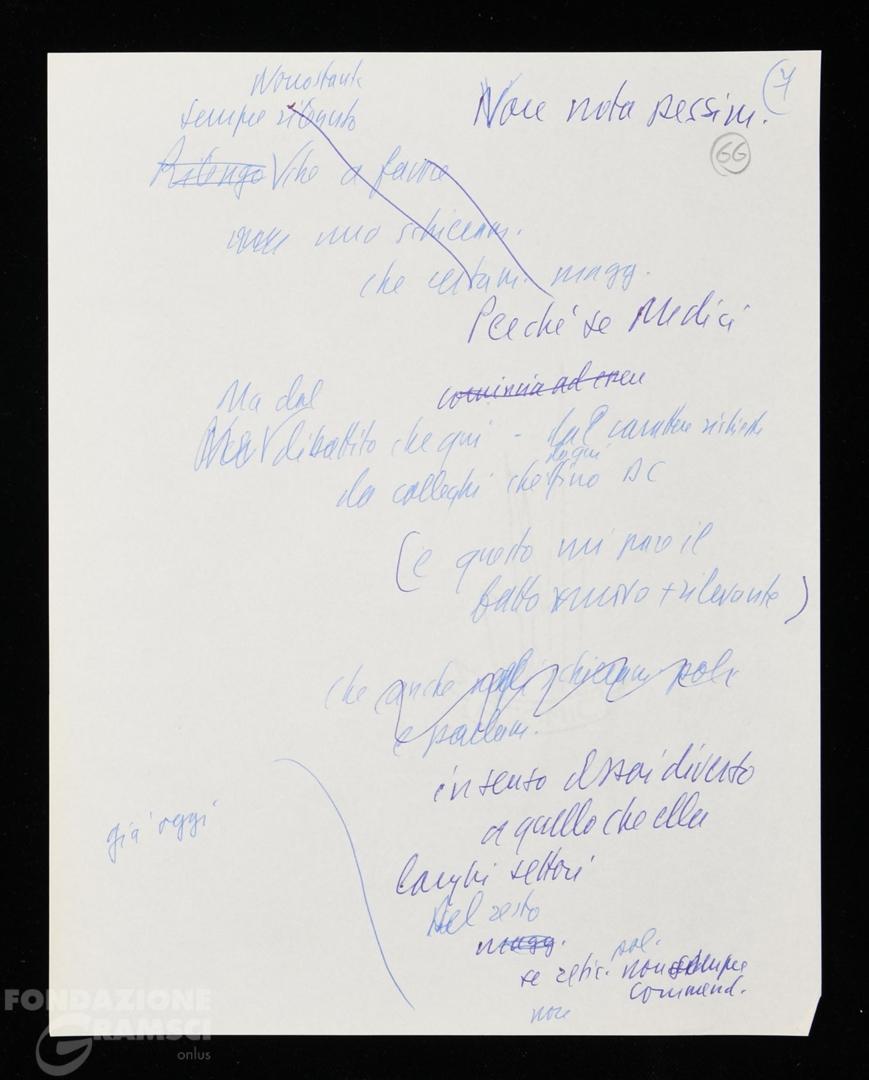 Nonostante
7
sempre ritenuto
Non nota pessim.
66
Ritengo che a favore
non uno schieram.
che certam. magg.
Perché se Medici
comincia ad
Ma dal
dibattito che qui - dal carattere
da qui
da colleghi che fino DC
(e questo mi pare il
fatto nuovo + rilevante)
che anche negli schieram. pol.
e parlam.
in senso assai diverso
a quello che ella
già oggi
larghi settori
Del resto
magg.
pol.
se non sempre
commend.
non
FONDAZIONE
GRAMSCI
onlus